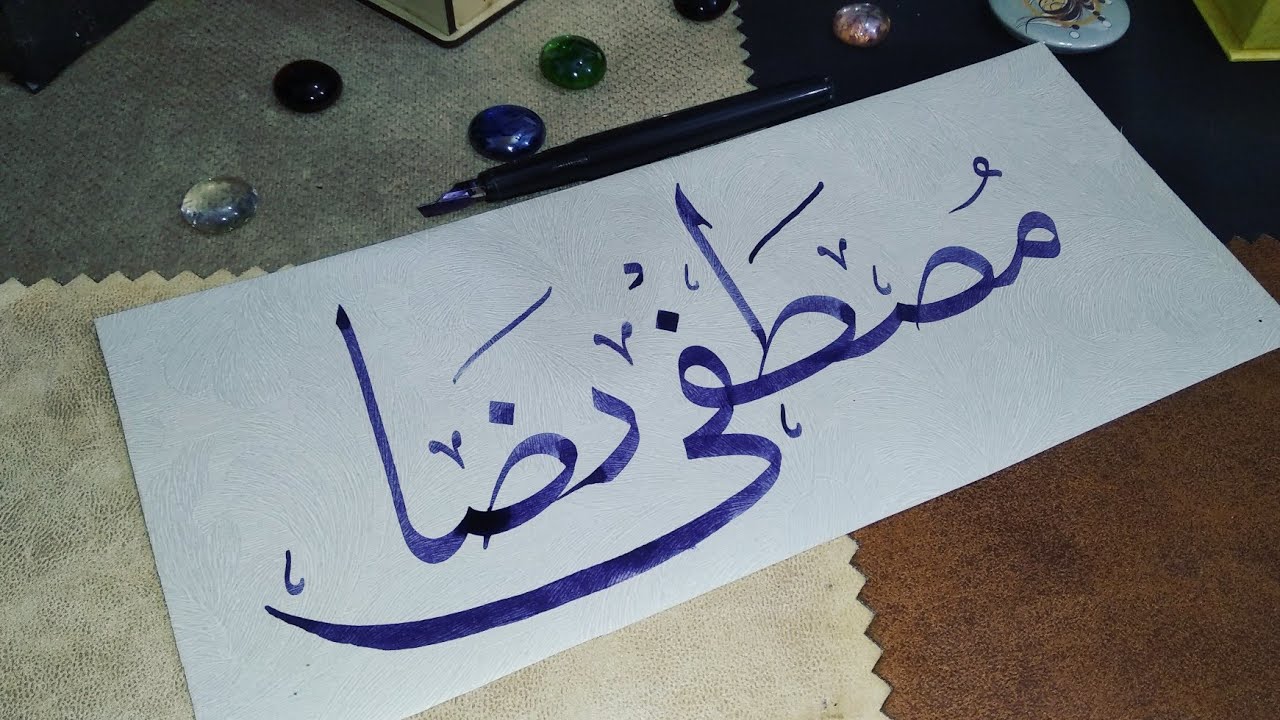 مُصطفى رضا